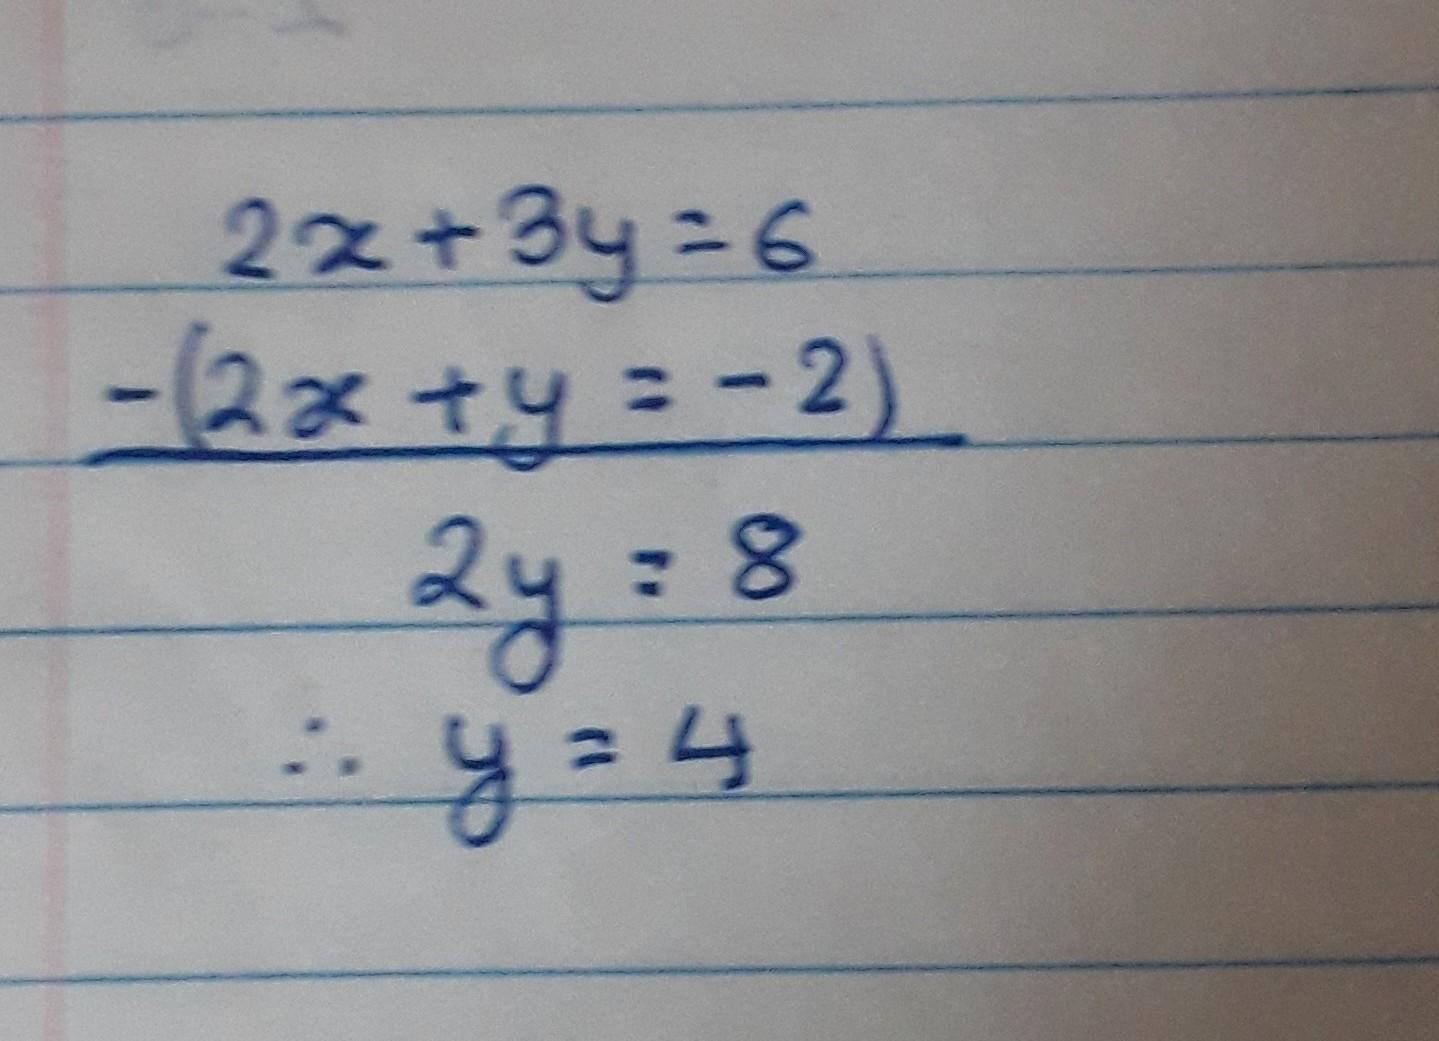 2x + 3y = 6
-(2x + y = -2)
2y = 8
∴ y = 4